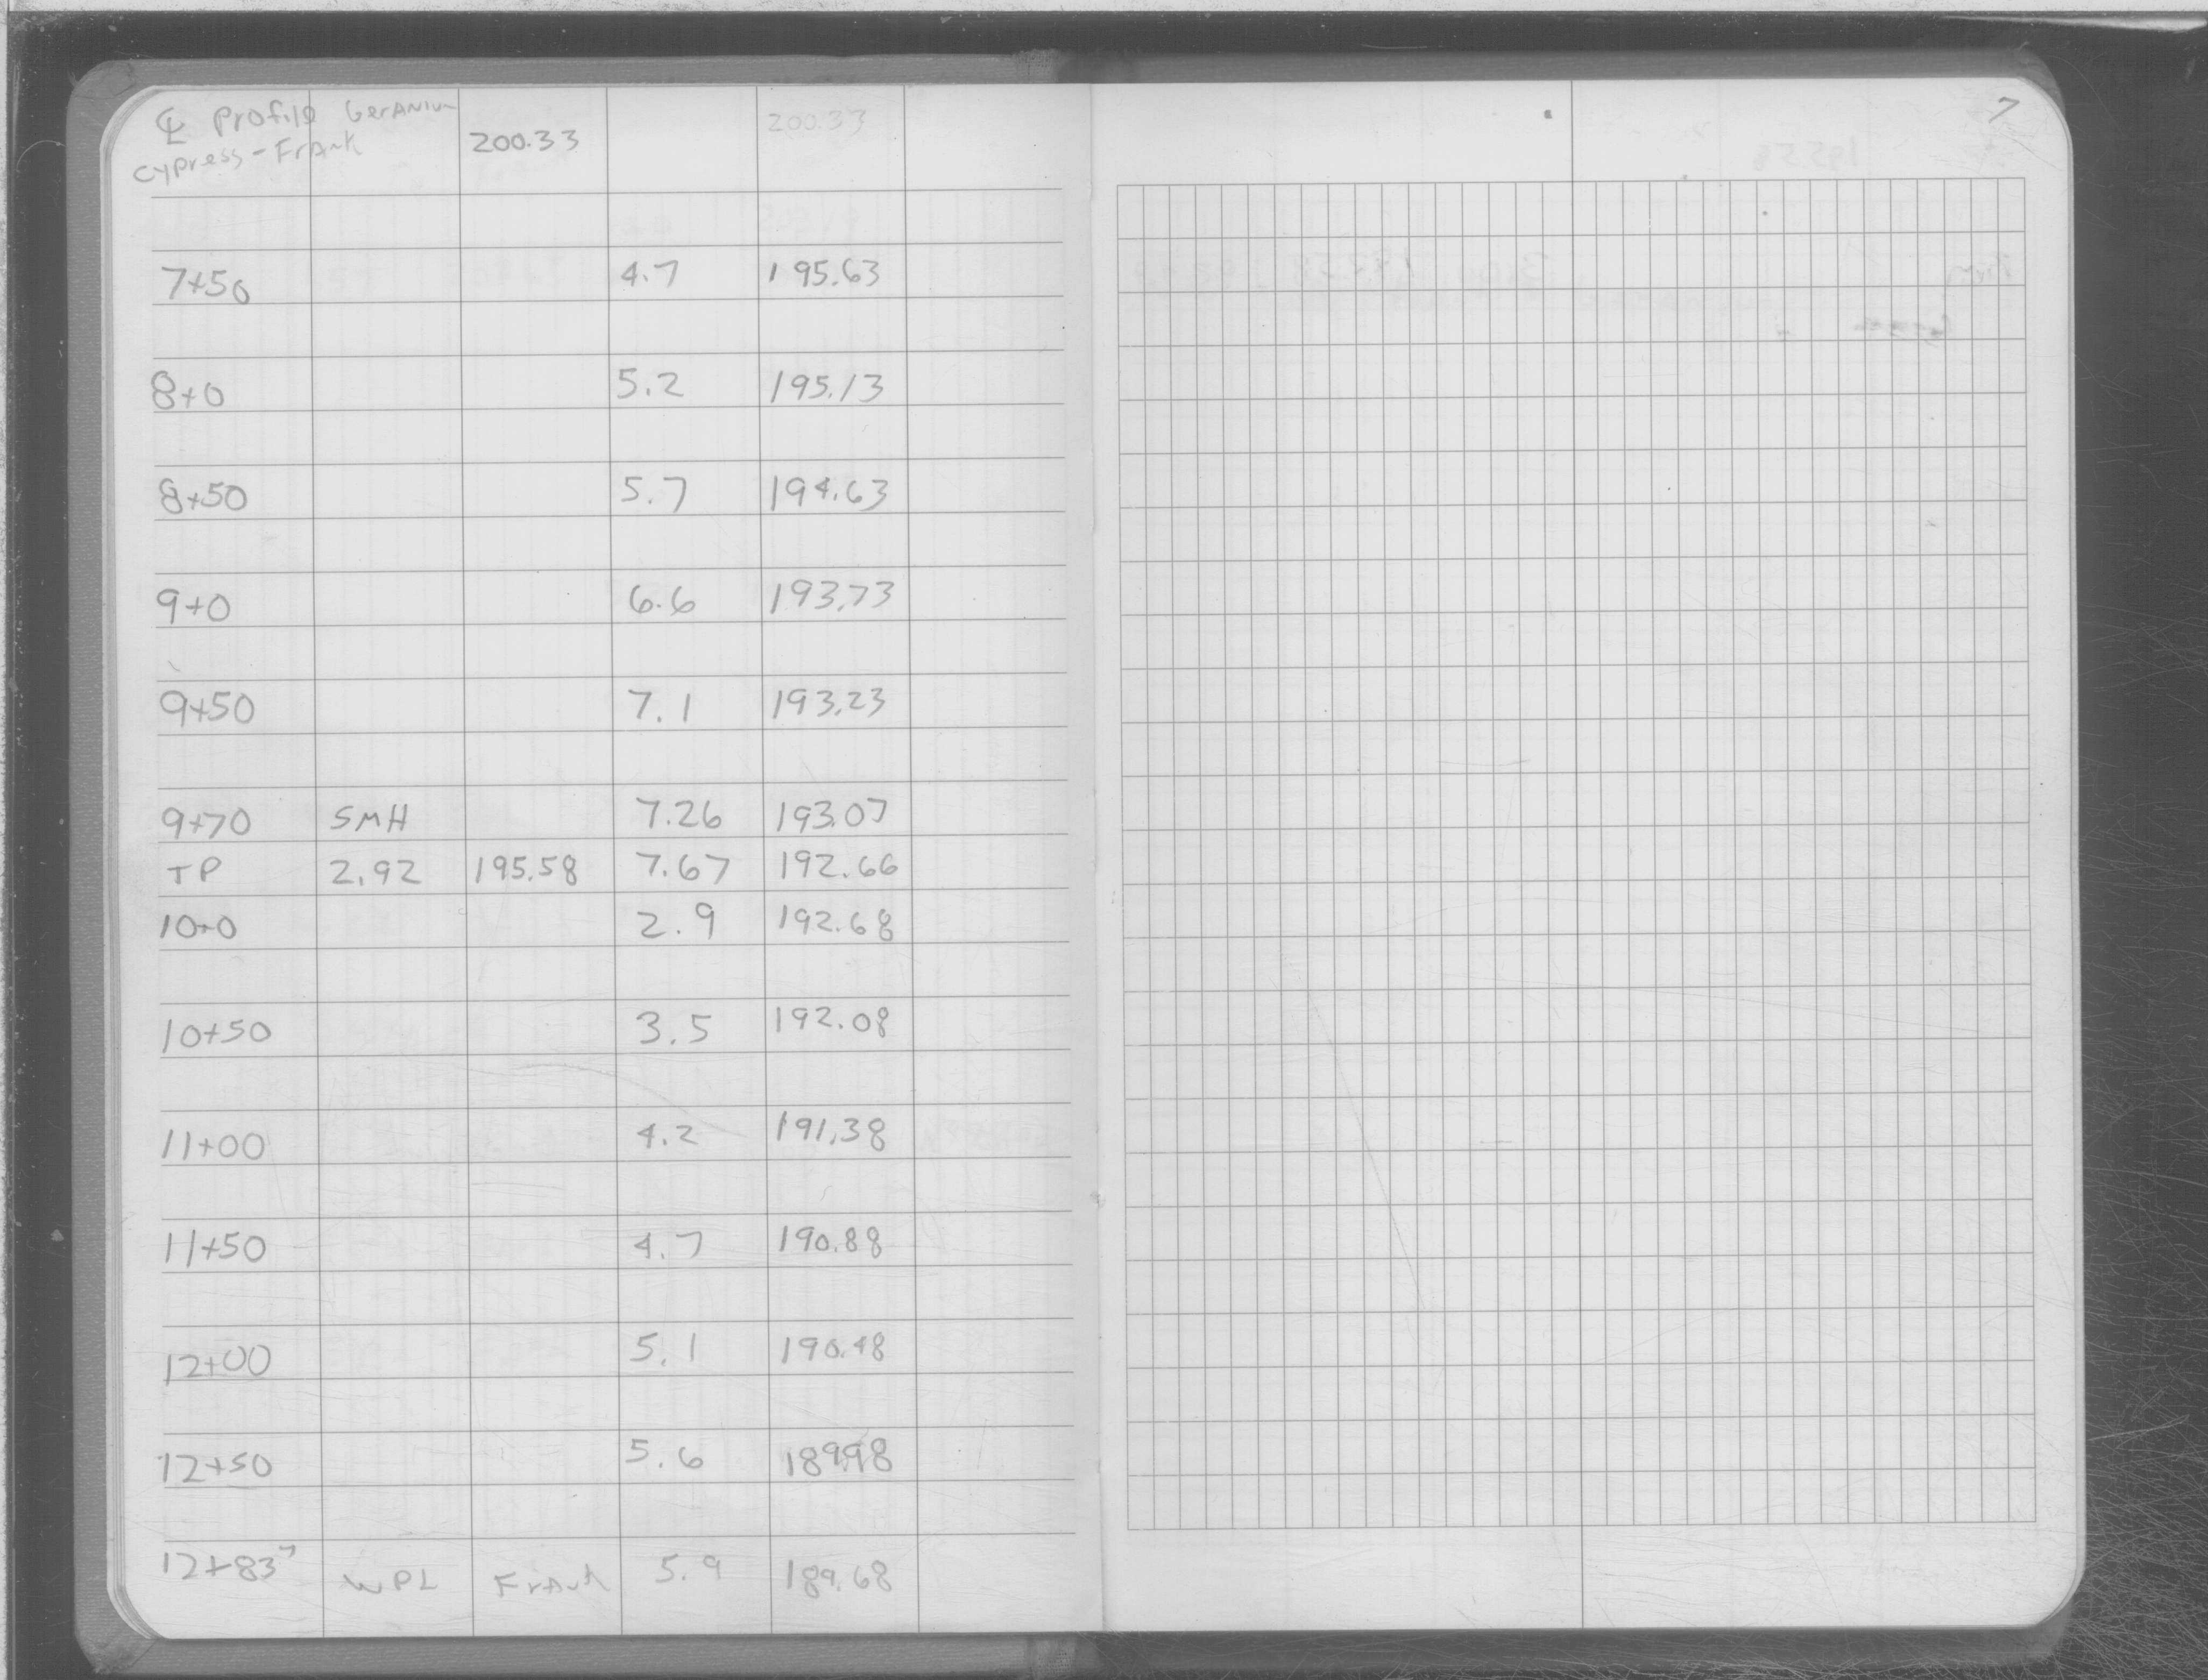 ℄ Profile Geranium
Cypress - Frank 200.33 200.33
7
7+50 4.7 195.63
8+0 5.2 195.13
8+50 5.7 194.63
9+0 6.6 193.73
9+50 7.1 193.23
9+70 SMH 7.26 193.07
TP 2.92 195.58 7.67 192.66
10+0 2.9 192.68
10+50 3.5 192.08
11+00 4.2 191.38
11+50 4.7 190.88
12+00 5.1 190.48
12+50 5.6 189.98
12+83⁷ WPL Frank 5.9 189.68